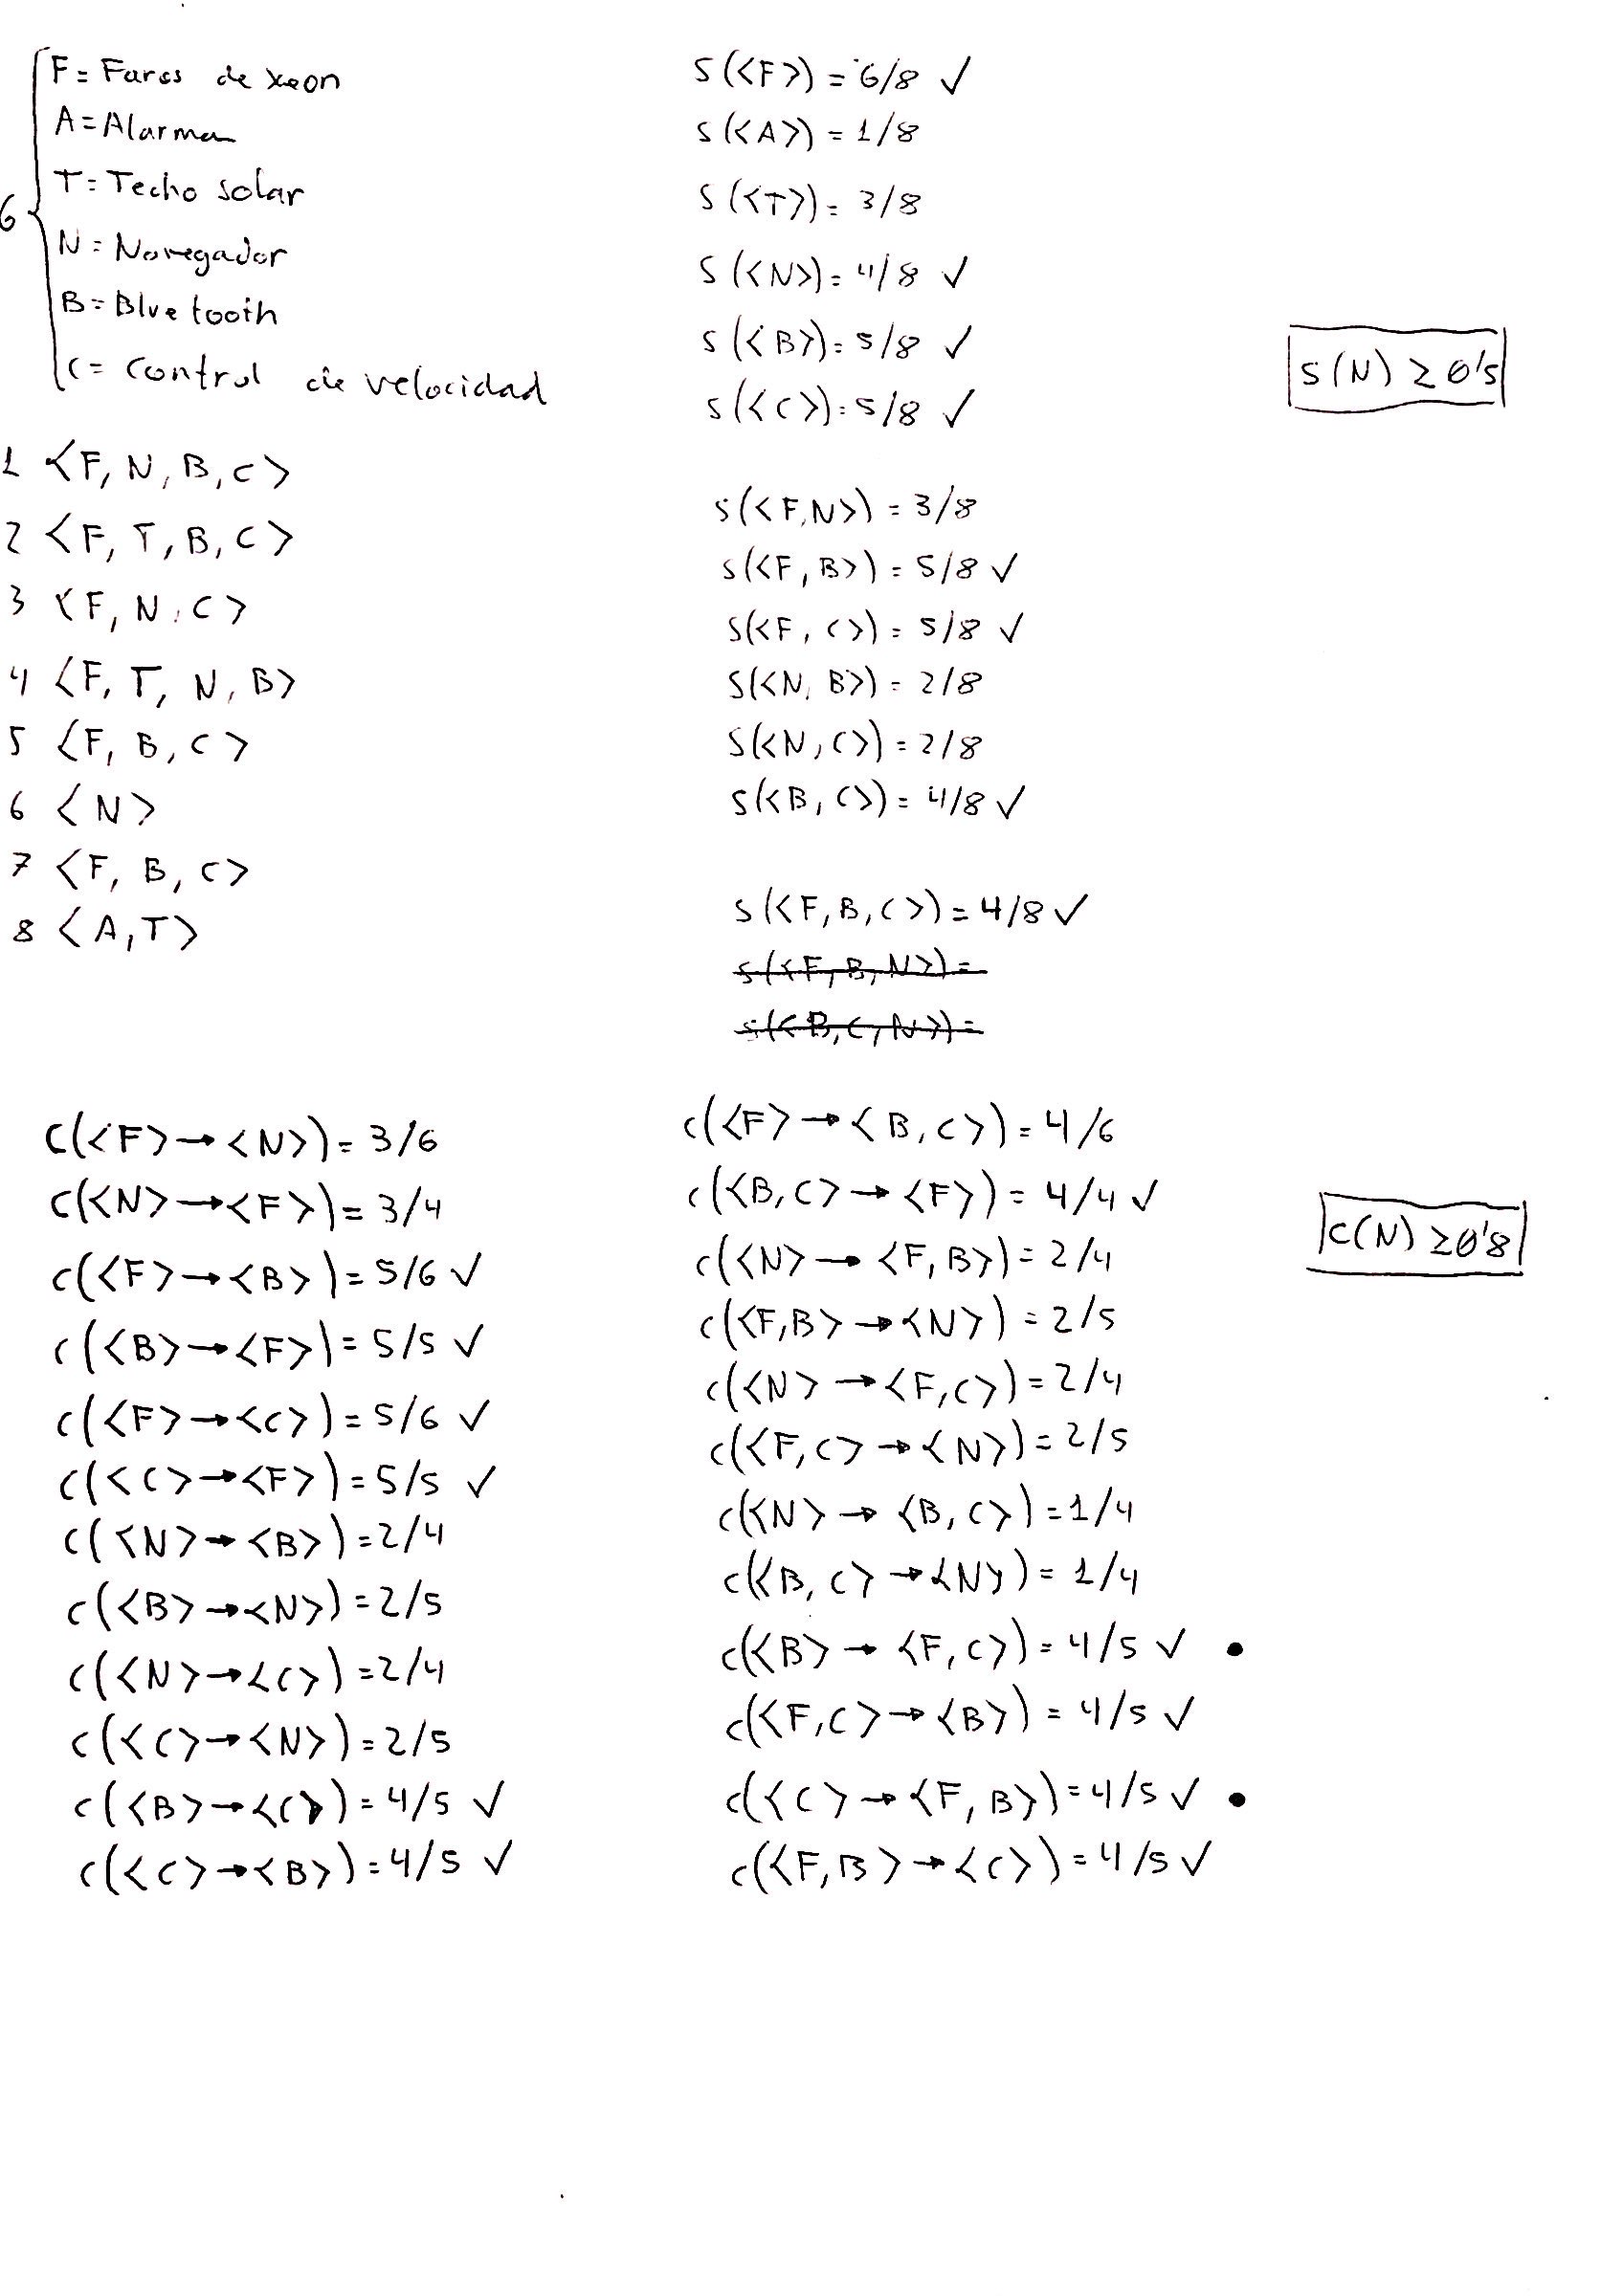 6
F = Faros de xeon
A = Alarma
T = Techo solar
N = Navegador
B = Bluetooth
C = Control de velocidad
1 <F, N, B, C>
2 <F, T, B, C>
3 <F, N, C>
4 <F, T, N, B>
5 <F, B, C>
6 <N>
7 <F, B, C>
8 <A, T>
s(<F>) = 6/8 ✓
s(<A>) = 1/8
s(<T>) = 3/8
s(<N>) = 4/8 ✓
s(<B>) = 5/8 ✓
s(<C>) = 5/8 ✓
s(<F,N>) = 3/8
s(<F, B>) = 5/8 ✓
s(<F, C>) = 5/8 ✓
s(<N, B>) = 2/8
s(<N, C>) = 2/8
s(<B, C>) = 4/8 ✓
s(<F, B, C>) = 4/8 ✓
s(<F, B, N>) =
s(<B, C, N>) =
s(N) ≥ 0's
c(<F> → <N>) = 3/6
c(<N> → <F>) = 3/4
c(<F> → <B>) = 5/6 ✓
c(<B> → <F>) = 5/5 ✓
c(<F> → <C>) = 5/6 ✓
c(<C> → <F>) = 5/5 ✓
c(<N> → <B>) = 2/4
c(<B> → <N>) = 2/5
c(<N> → <C>) = 2/4
c(<C> → <N>) = 2/5
c(<B> → <C>) = 4/5 ✓
c(<C> → <B>) = 4/5 ✓
c(<F> → <B, C>) = 4/6
c(<B, C> → <F>) = 4/4 ✓
c(<N> → <F, B>) = 2/4
c(<F,B> → <N>) = 2/5
c(<N> → <F,C>) = 2/4
c(<F,C> → <N>) = 2/5
c(<N> → <B, C>) = 1/4
c(<B, C> → <N>) = 1/4
c(<B> → <F, C>) = 4/5 ✓ •
c(<F,C> → <B>) = 4/5 ✓
c(<C> → <F, B>) = 4/5 ✓ •
c(<F,B> → <C>) = 4/5 ✓
c(N) ≥ 0'8